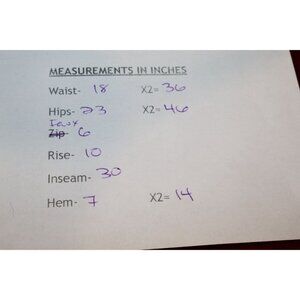 MEASUREMENTS IN INCHES
Waist- 18 X2= 36
Hips- 23 X2= 46
Faux
Zip- 6
Rise- 10
Inseam- 30
Hem- 7 X2= 14